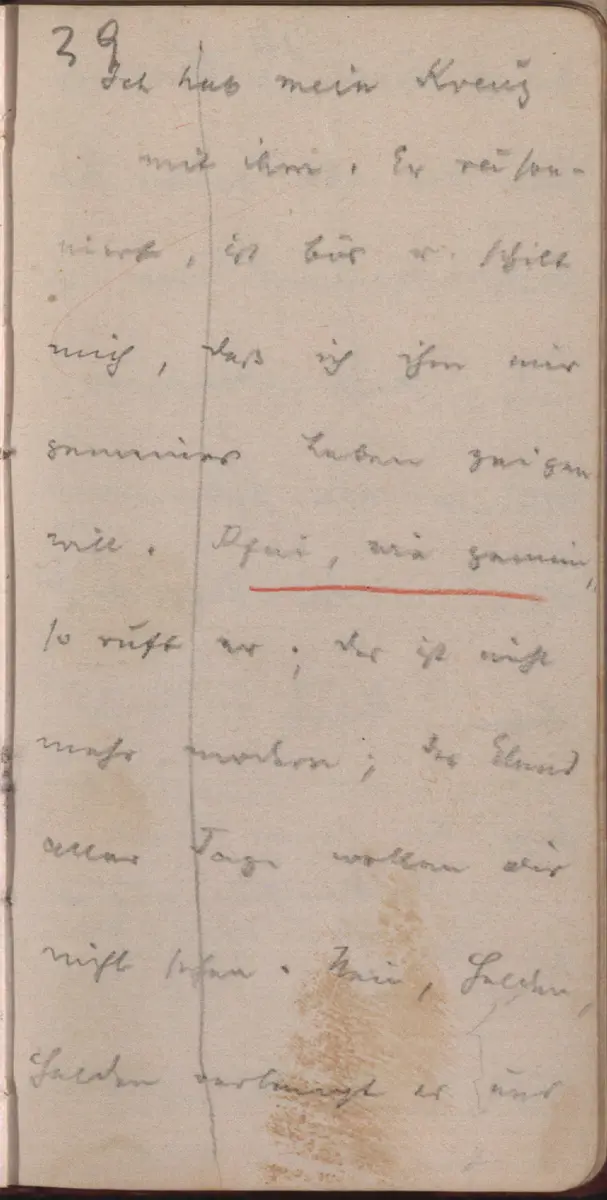 39
Ich hab mein Kreuz
mit ihm. Er räson-
niert, ist bös u. schilt
mich, daß ich ihm nur
gemeines Leben zeigen
will. Pfui, wie gemein,
so ruft er; das ist nicht
mehr modern; das Elend
aller Tage wollen wir
nicht sehen. Nein, Helden,
Helden verlangt er und